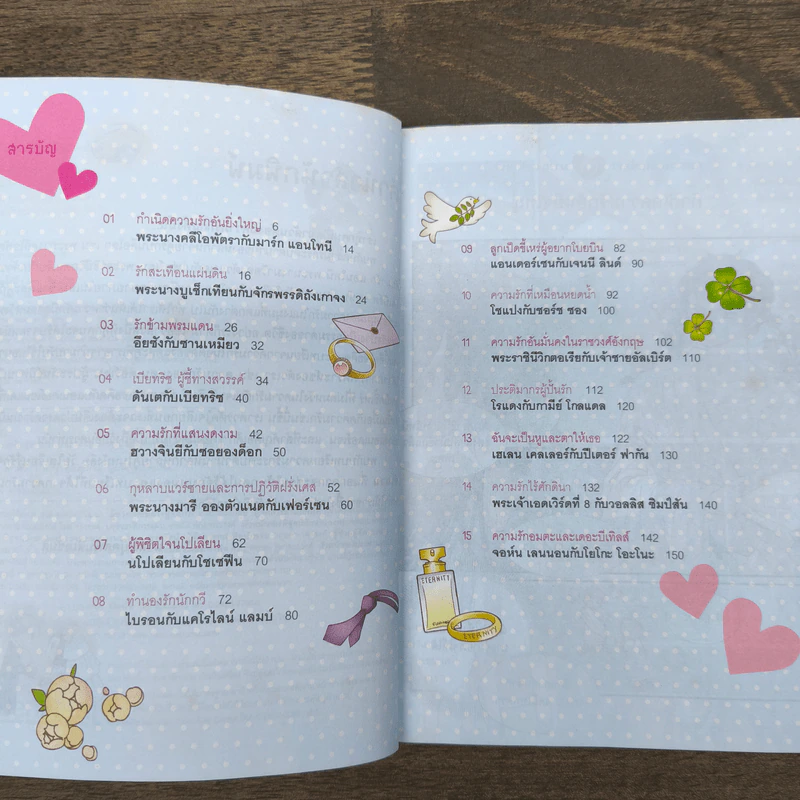 สารบัญ
01 กำเนิดความรักอันยิ่งใหญ่ 6
พระนางคลีโอพัตรากับมาร์ก แอนโทนี 14
02 รักสะเทือนแผ่นดิน 16
พระนางบูเช็กเทียนกับจักรพรรดิถังเกาจง 24
03 รักข้ามพรมแดน 26
อียซังกับซานเหมียว 32
04 เบียทริซ ผู้ชี้ทางสวรรค์ 34
ดันเตกับเบียทริซ 40
05 ความรักที่แสนงดงาม 42
ฮวางจินยีกับซอยองด็อก 50
06 กุหลาบแวร์ซายและการปฏิวัติฝรั่งเศส 52
พระนางมารี อองตัวแนตกับเฟอร์เซน 60
07 ผู้พิชิตใจนโปเลียน 62
นโปเลียนกับโชเซฟีน 70
08 ทำนองรักนักกวี 72
ไบรอนกับแคโรไลน์ แลมบ์ 80
09 ลูกเป็ดขี้เหร่ผู้อยากโบยบิน 82
แอนเดอร์เซนกับเจนนี ลินด์ 90
10 ความรักที่เหมือนหยดน้ำ 92
โชแปงกับชอร์ช ซอง 100
11 ความรักอันมั่นคงในราชวงศ์อังกฤษ 102
พระราชินีวิกตอเรียกับเจ้าชายอัลเบิร์ต 110
12 ประติมากรผู้ปั้นรัก 112
โรแดงกับกามีย์ โกลแดล 120
13 ฉันจะเป็นหูและตาให้เธอ 122
เฮเลน เคลเลอร์กับปีเตอร์ ฟากัน 130
14 ความรักไร้ศักดินา 132
พระเจ้าเอดเวิร์ดที่ 8 กับวอลลิส ซิมป์สัน 140
15 ความรักอมตะและเดอะบีเทิลส์ 142
จอห์น เลนนอนกับโยโกะ โอะโนะ 150
ETERNITY
ETERNITY